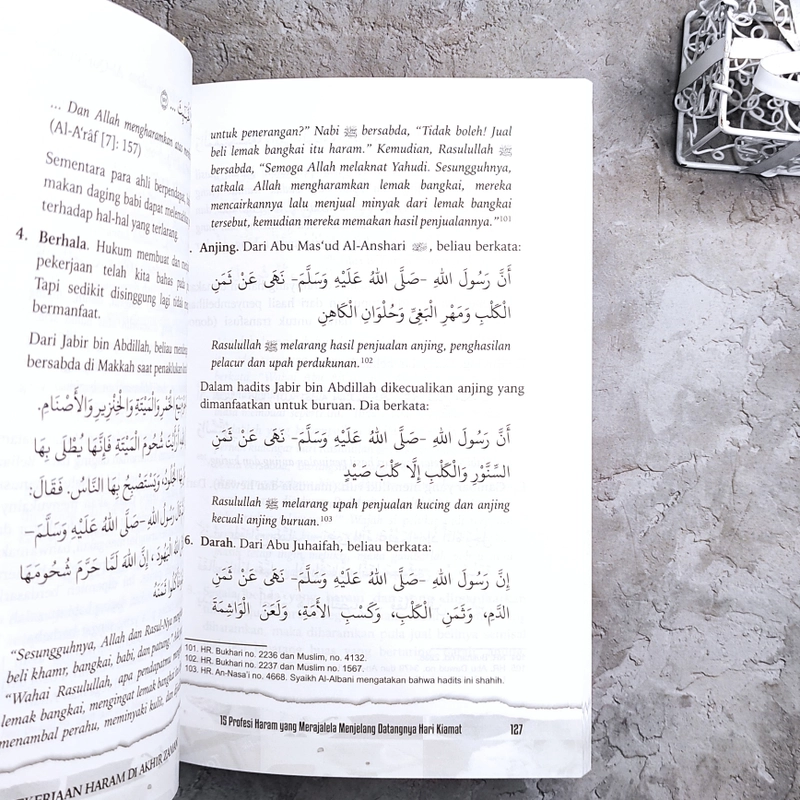 ... Dan Allah mengharamkan atas
(Al-A'râf [7]: 157)
Sementara para ahli berpendapat,
makan daging babi dapat
terhadap hal-hal yang terlarang.
4. Berhala. Hukum membuat dan
pekerjaan telah kita bahas pada
Tapi sedikit disinggung lagi tidak
bermanfaat.
Dari Jabir bin Abdillah, beliau
bersabda di Makkah saat penaklukan
الْخَمْرِ وَالْمَيْتَةِ وَالْخِنْزِيرِ وَالْأَصْنَامِ.
شُحُومَ الْمَيْتَةِ فَإِنَّهَا يُطْلَى بِهَا
وَيَسْتَصْبِحُ بِهَا النَّاسُ. فَقَالَ:
رَسُولُ اللهِ -صَلَّى اللهُ عَلَيْهِ وَسَلَّمَ-
اللهُ الْيَهُودَ، إِنَّ اللهَ لَمَّا حَرَّمَ شُحُومَهَا
ثَمَنَهُ
"Sesungguhnya, Allah dan Rasul-Nya
beli khamr, bangkai, babi, dan patung."
"Wahai Rasulullah, apa pendapatmu
lemak bangkai, mengingat lemak bangkai
menambal perahu, meminyaki kulit, dan
PEKERJAAN HARAM DI AKHIR ZAMAN
untuk penerangan?" Nabi ﷺ bersabda, "Tidak boleh! Jual
beli lemak bangkai itu haram." Kemudian, Rasulullah ﷺ
bersabda, "Semoga Allah melaknat Yahudi. Sesungguhnya,
tatkala Allah mengharamkan lemak bangkai, mereka
mencairkannya lalu menjual minyak dari lemak bangkai
tersebut, kemudian mereka memakan hasil penjualannya."101
Anjing. Dari Abu Mas'ud Al-Anshari, beliau berkata:
أَنَّ رَسُولَ اللهِ -صَلَّى اللهُ عَلَيْهِ وَسَلَّمَ- نَهَى عَنْ ثَمَنِ
الْكَلْبِ وَمَهْرِ الْبَغِيِّ وَحُلْوَانِ الْكَاهِنِ
Rasulullah ﷺ melarang hasil penjualan anjing, penghasilan
pelacur dan upah perdukunan.102
Dalam hadits Jabir bin Abdillah dikecualikan anjing yang
dimanfaatkan untuk buruan. Dia berkata:
أَنَّ رَسُولَ اللهِ -صَلَّى اللهُ عَلَيْهِ وَسَلَّمَ- نَهَى عَنْ ثَمَنِ
السِّنَّوْرِ وَالْكَلْبِ إِلَّا كَلْبَ صَيْدٍ
Rasulullah ﷺ melarang upah penjualan kucing dan anjing
kecuali anjing buruan.103
6. Darah. Dari Abu Juhaifah, beliau berkata:
إِنَّ رَسُولَ اللهِ -صَلَّى اللهُ عَلَيْهِ وَسَلَّمَ- نَهَى عَنْ ثَمَنِ
الدَّمِ، وَثَمَنِ الْكَلْبِ، وَكَسْبِ الأَمَةِ، وَلَعَنَ الْوَاشِمَةَ
101. HR. Bukhari no. 2236 dan Muslim, no. 4132.
102. HR. Bukhari no. 2237 dan Muslim no. 1567.
103. HR. An-Nasa'i no. 4668. Syaikh Al-Albani mengatakan bahwa hadits ini shahih.
15 Profesi Haram yang Merajalela Menjelang Datangnya Hari Kiamat 127